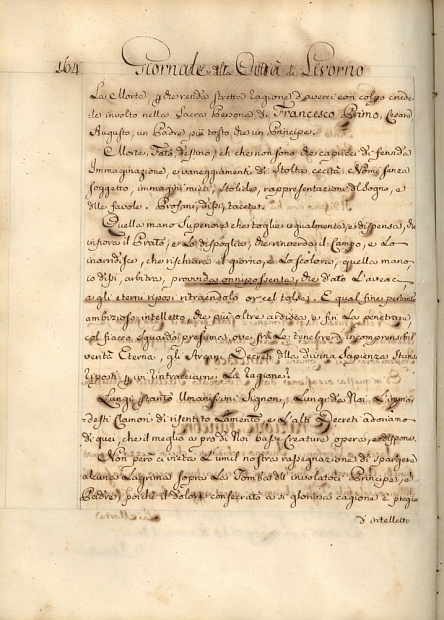 164 Giornale della Città di Livorno
La Morte, che renda stretta Ragione d'averci con colpo crude
le involto nella Sacra Persona di Francesco Primo, Cesare
Augusto, un Padre più tosto che un Principe.
Morte, Fato, destino, eh che non sono che capricci di fervida
Immaginazione, e vaneggiamenti di Stolta cecità: Nomi senza
soggetto, immagini mute, Stolide, rappresentazione di sogno, e
delle favole. Profani, tacete.
Quella mano Superiore che toglie ugualmente, e dispensa, che
infiora il Prato, e Lo dispoglia, che rinverda il Campo, e Lo
inaridisce, che rischiara il giorno, e Lo scolora, quella mano
arbitra, provvida onnipossente, che dato L'avea
agli eterni riposi ritraendolo or cel tolse. E qual fine
ambizioso intelletto, che più oltre ardisca, e fin La penetrare
col fiacco sguardo presuma, ove fra Le tenebre d'incomprensibil
verità Eterna, gli Arcani Decreti della divina Sapienza Stan
riposti per rintracciarne La Ragione?
Lungi pertanto Umanissimi Signori, Lungi da Noi, L'immo
desti Clamori di risentito Lamento, e L'alti Decreti adoriamo
di quei, che il meglio a pro di Noi basse Creature opera, e dispone.
Non però ci vieta L'umil nostra rassegnazione di spargere
alcuna Lagrima sopra La Tomba dell' involatoci Principe, e
Padre, poichè il dolore consecrato a sì gloriosa cagione è pregio
d'intelletto